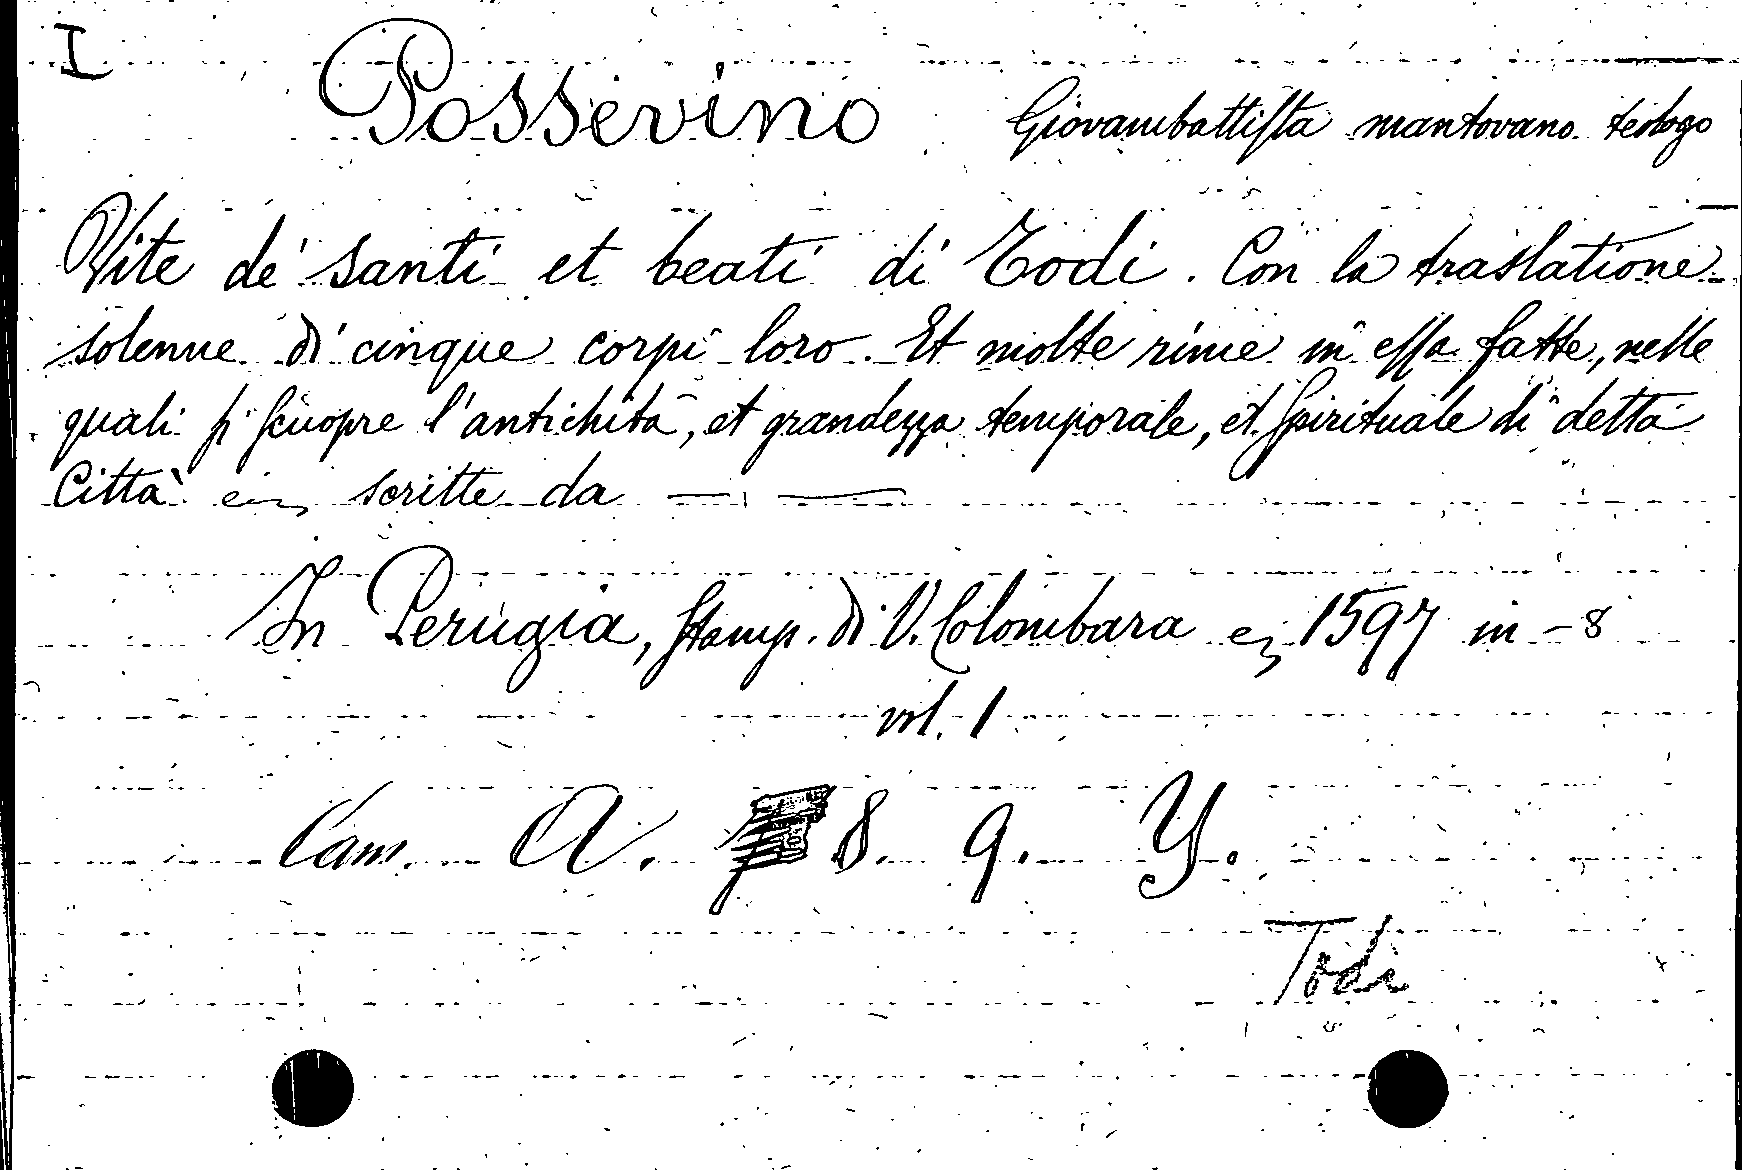 I
Possevino Giovambattista mantovano teologo
Vite de' santi et beati di Todi. Con la traslatione
solenne di cinque corpi loro. Et molte rime in essa fatte, nelle
quali si scuopre l'antichità, et grandezza temporale, et spirituale di detta
Città scritte da — —
In Perugia, Stamp. di V. Colombara 1597 in-8
vol. 1
Cam. A. 8. 9. Y.
Todi